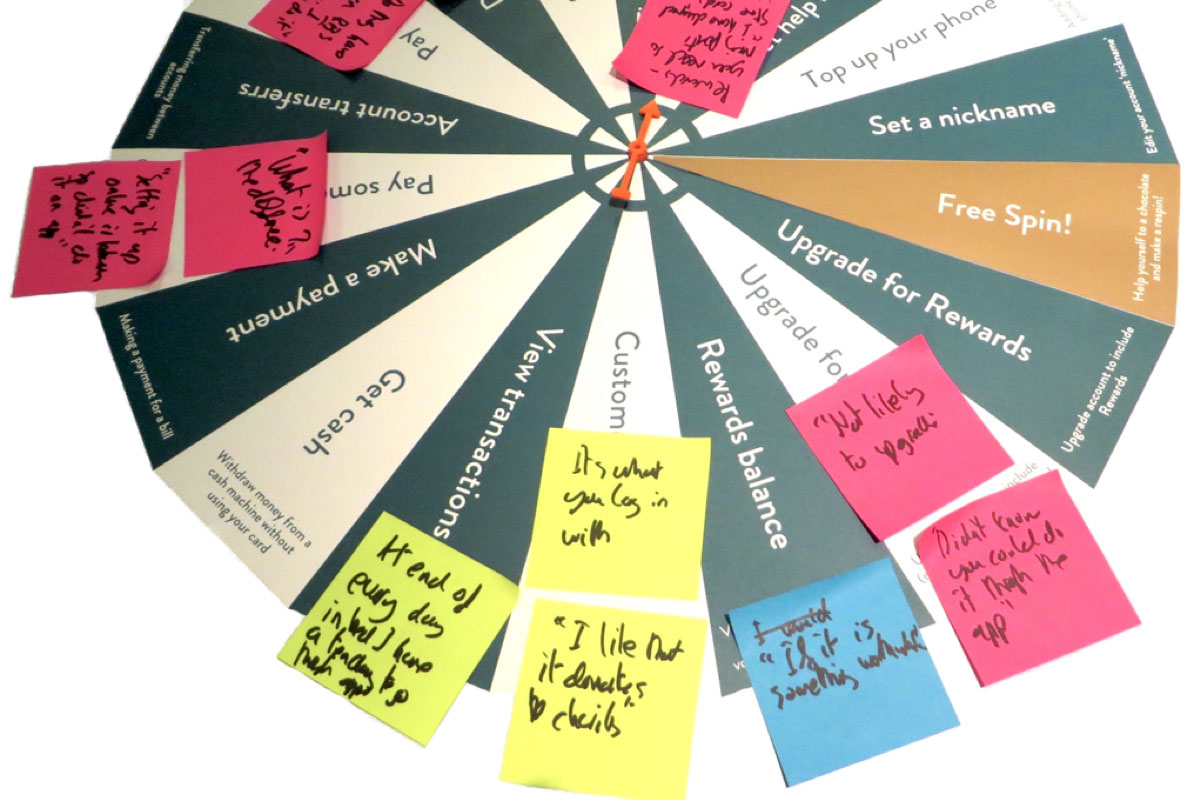 Pay
Account transferrs
Transferring money between
accounts
Pay som
Make a payment
Making a payment for a bill
Get cash
Withdraw money from a
cash machine without
using your card
View transactions
Custom
Rewards balance
Upgrade for
Upgrade for Rewards
Upgrade account to include
Rewards
Free Spin!
Help yourself to a chocolate
and make a respin!
Set a nickname
Edit your account 'nickname'
Top up your phone
et help
include
"What is
the difference."
"Setting it up
online is
so didn't do
it on app"
Rewards -
you need to
"Not likely
to upgrade
Didn't know
you could do
it through the
app"
I would
"If it is
something worthwhile"
It's what
you log in
with
"I like that
it donates
to charity"
At end of
every day
in bed I have
a tendency to go